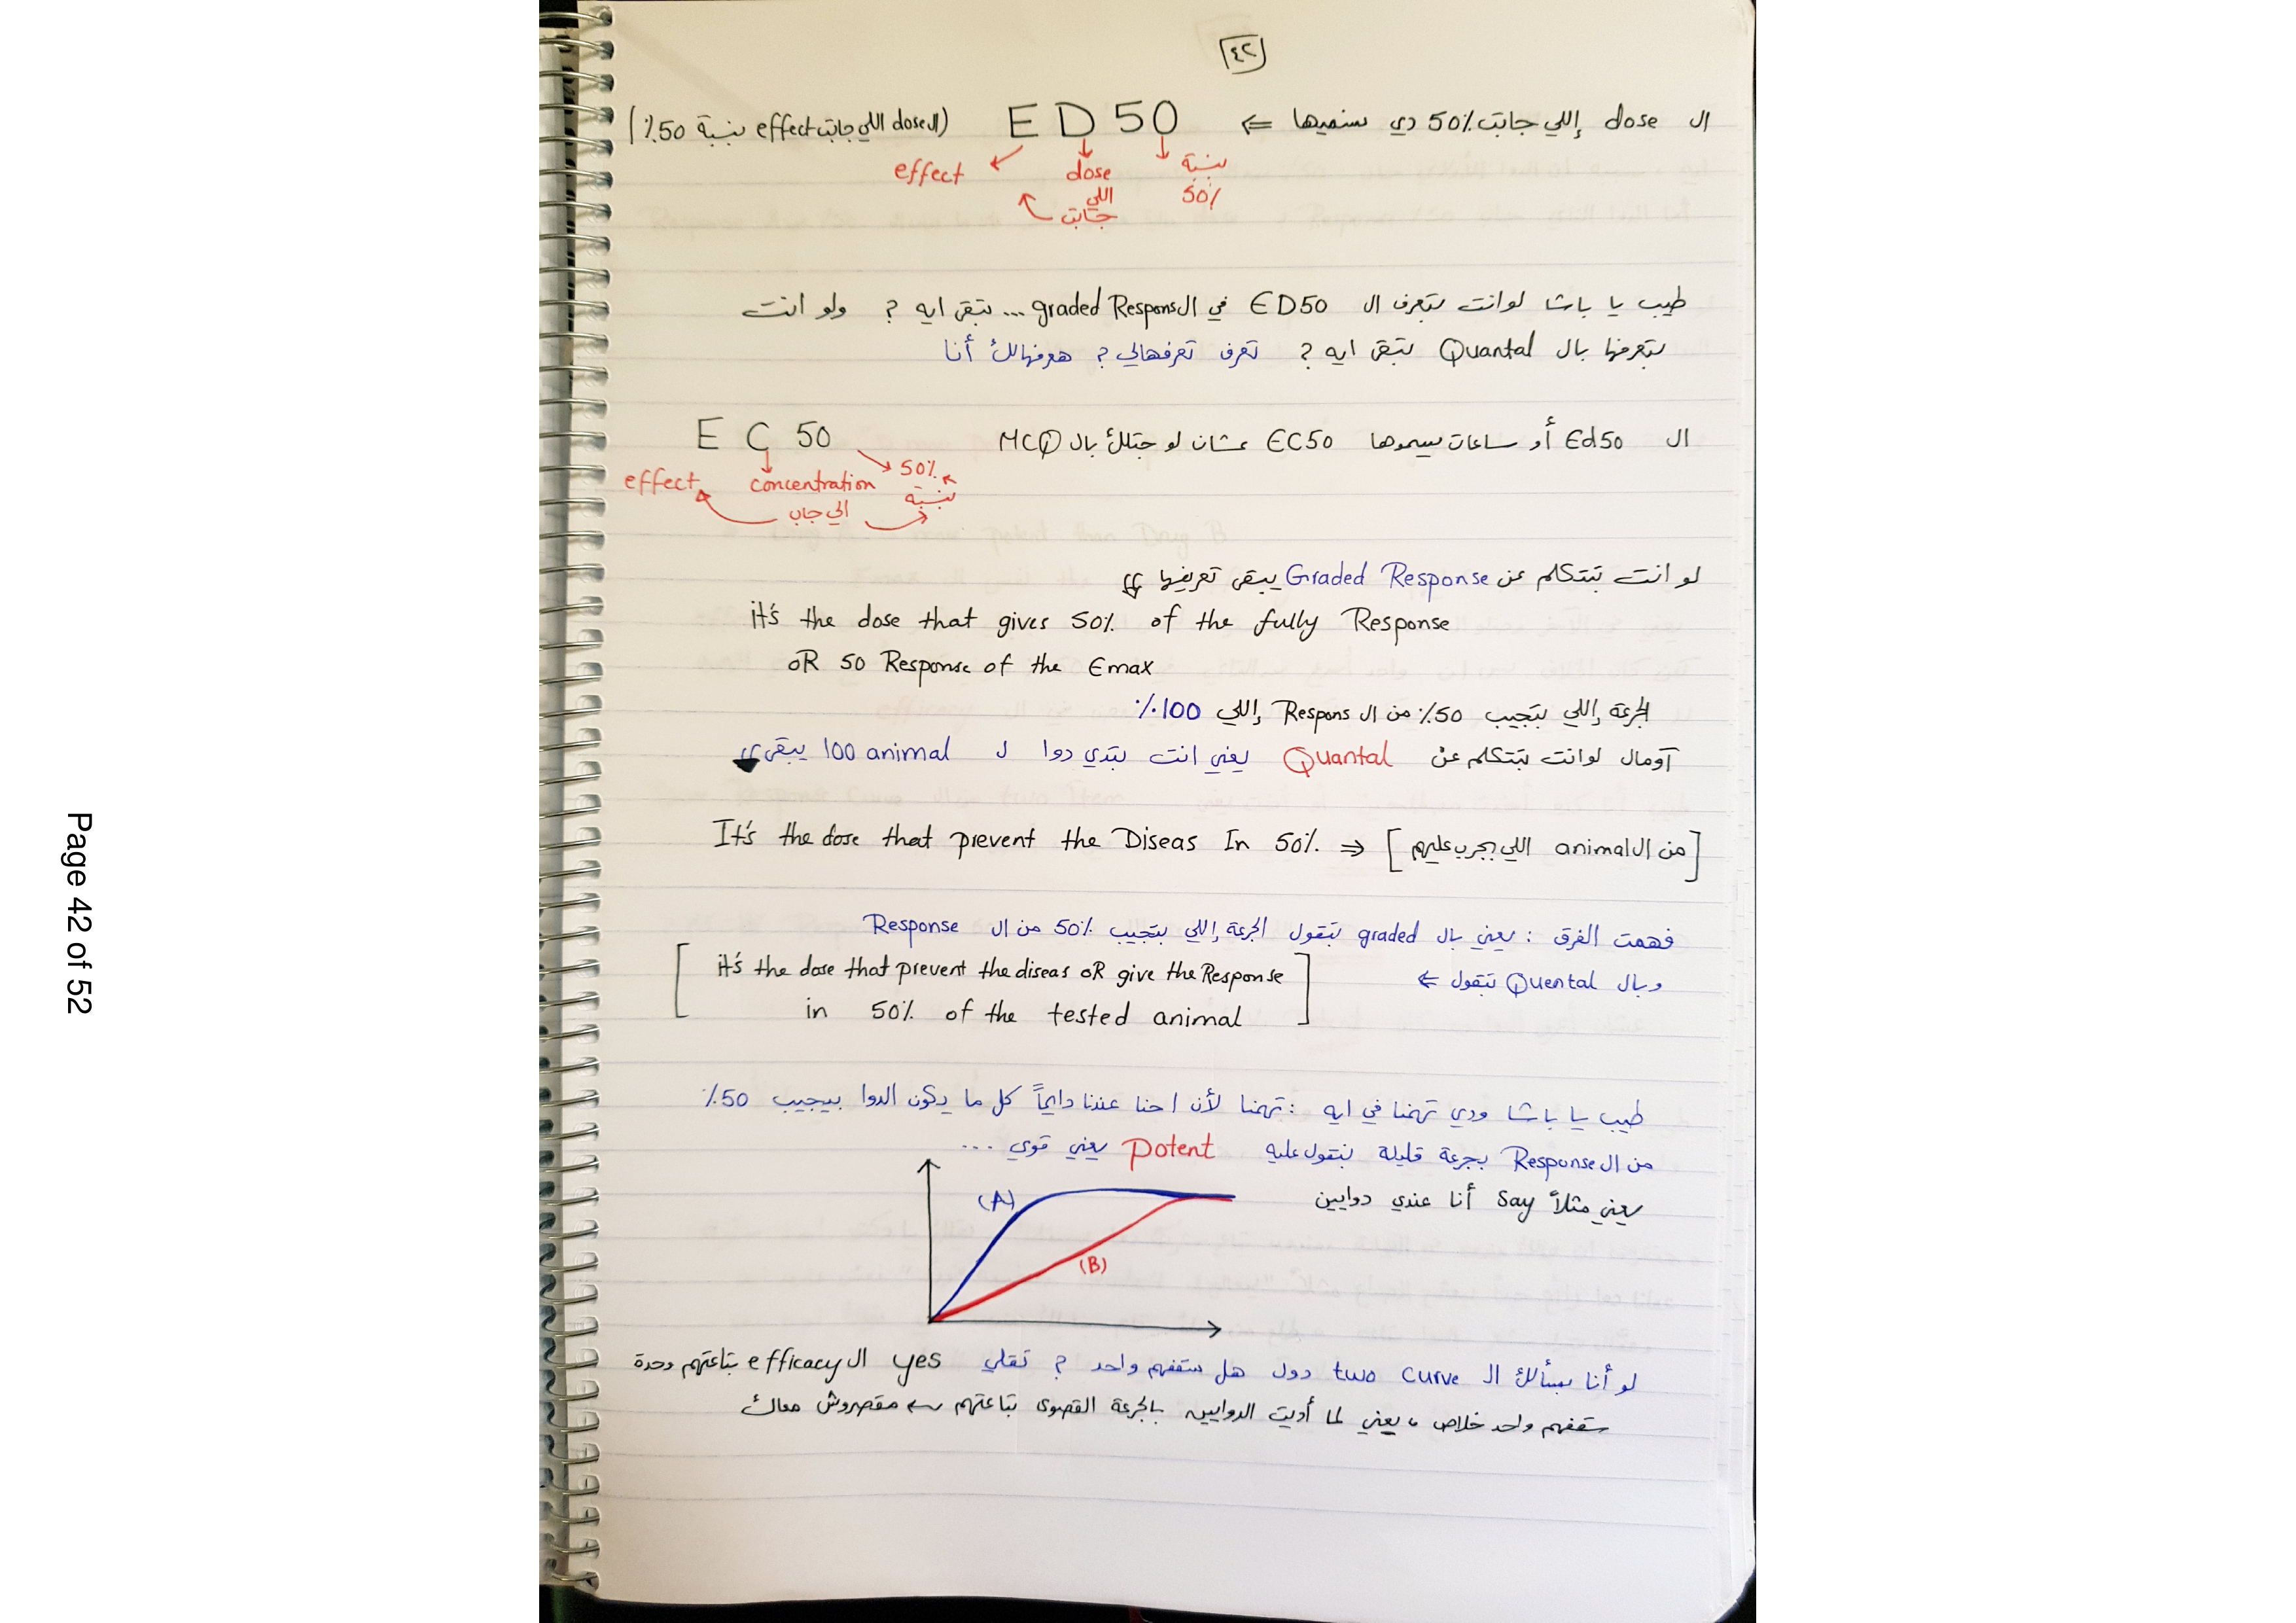 Page 42 of 52
٤٢
ال dose إللي جابت 50٪ دي بنسميها ⇐ ED50 (ال dose اللي جابت effect بنسبة 50٪)
effect dose بنسبة
اللي 50٪
جابت
طيب يا باشا لو انت بتعرف ال ED50 في ال graded Respons ... تبقى ايه ? ولو انت
بتعرفها بال Quantal تبقى ايه ? تعرف تعرفهالي ? هعرفهالك أنا
ال Ed50 أو ساعات بيسموها EC50 عشان لو جتلك بال MCQ EC50
effect concentration 50%
الي جاب بنسبة
لو انت بتتكلم عن Graded Response يبقى تعريفها
it's the dose that gives 50% of the fully Response
OR 50 Response of the Emax
الجرعة إللي بتجيب 50٪ من ال Respons إللي 100٪
آومال لو انت بتتكلم عن Quantal يعني انت بتدي دوا ل 100 animal يبقى
It's the dose that prevent the Diseas In 50% ⇒ [من ال animal اللي بجرب عليهم]
فهمت الفرق : يعني بال graded بتقول الجرعة إللي بتجيب 50٪ من ال Response
وبال Quental تبقول ⇐ [it's the dose that prevent the diseas OR give the Response
in 50% of the tested animal]
طيب يا باشا ودي تهمنا في ايه : تهمنا لأن احنا عندنا دايماً كل ما يكون الدوا بيجيب 50٪
من ال Response بجرعة قليلة بنقول عليه potent يعني قوي ...
يعني مثلاً say أنا عندي دوايين
(A)
(B)
لو أنا بسألك ال two curve دول هل سقفهم واحد ? تقلي yes ال efficacy بتاعتهم وحدة
سقفهم واحد خلاص ، يعني لما أديت الدوايين بالجرعة القصوى بتاعتهم مقصروش معاك